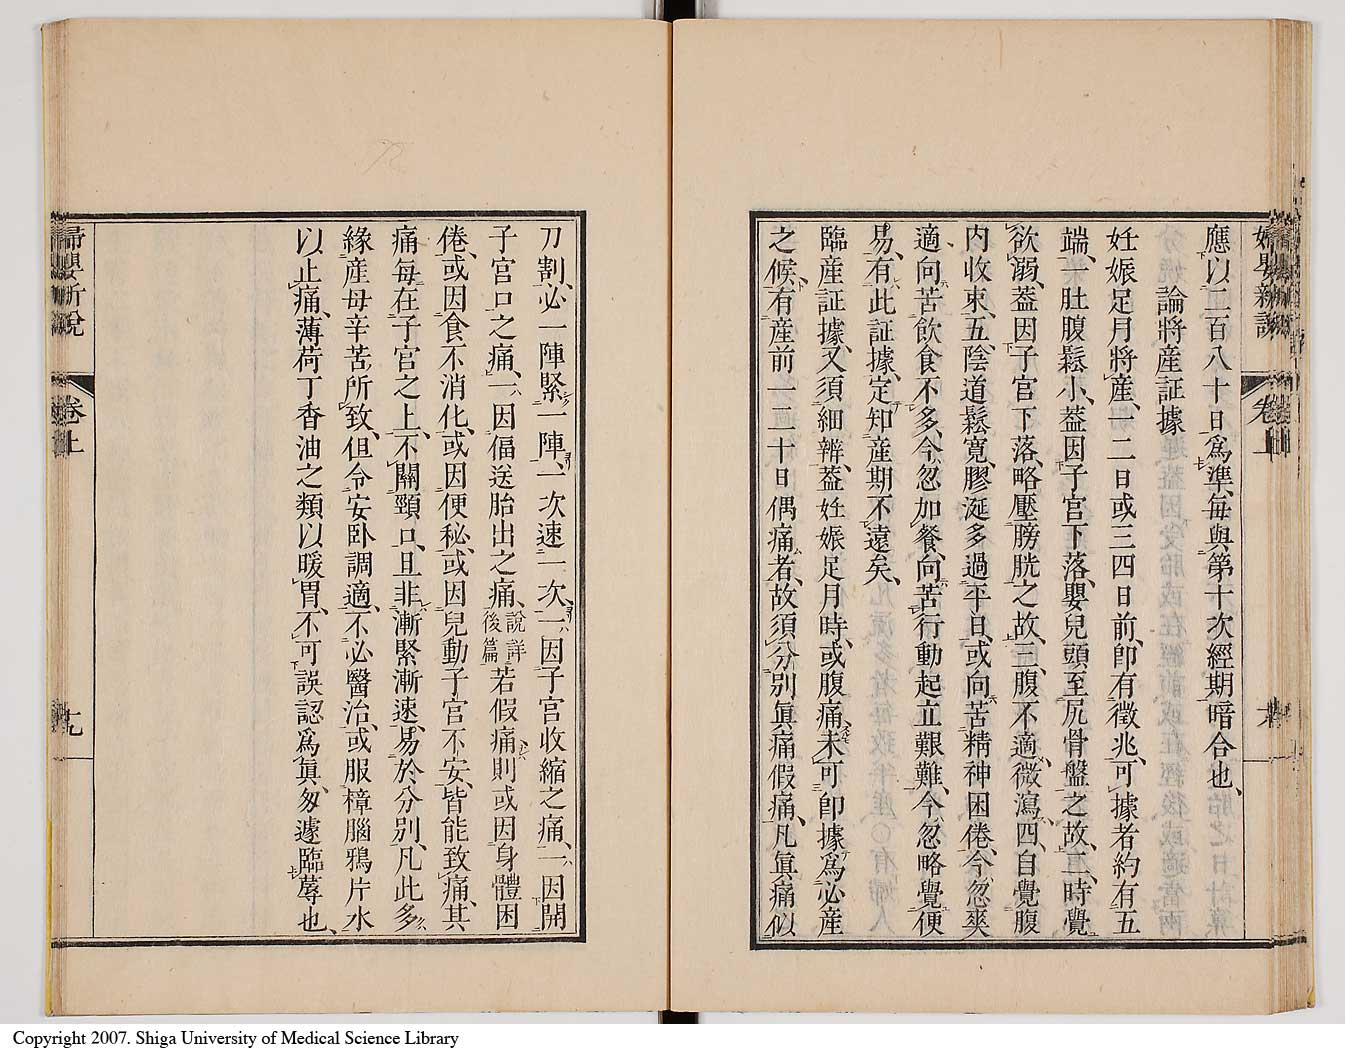 應以二百八十日爲準、每與第十次經期暗合也、
論將產証據
妊娠足月將產、二日或三四日前、卽有徵兆、可據者約有五
端、一肚腹鬆小、葢因子宮下落、嬰兒頭至尻骨盤之故、二時覺
欲溺、葢因子宮下落、略壓膀胱之故、三腹不適、微瀉、四自覺腹
内收束、五陰道鬆寬、膠涎多過平日、或向苦精神困倦、今忽爽
適、向苦飲食不多、今忽加餐、向苦行動起立艱難、今忽略覺便
易、有此証據、定知產期不遠矣、
臨產証據、又須細辨、葢妊娠足月時、或腹痛、未可卽據爲必產
之候、有產前一二十日偶痛者、故須分別眞痛假痛、凡眞痛似
婦嬰新說
卷上
刀割、必一陣緊一陣、一次速一次、一因子宮收縮之痛、一因開
子宮口之痛、一因偪送胎出之痛、說詳
後篇
若假痛則或因身體困
倦、或因食不消化、或因便秘、或因兒動子宮不安、皆能致痛、其
痛每在子宮之上、不關頸口、且非漸緊漸速、易於分別、凡此多
緣產母辛苦所致、但令安卧調適、不必醫治、或服樟腦鴉片水
以止痛、薄荷丁香油之類以暖胃、不可誤認爲眞、匆遽臨蓐也、
婦嬰新說
卷上
十九
Copyright 2007. Shiga University of Medical Science Library